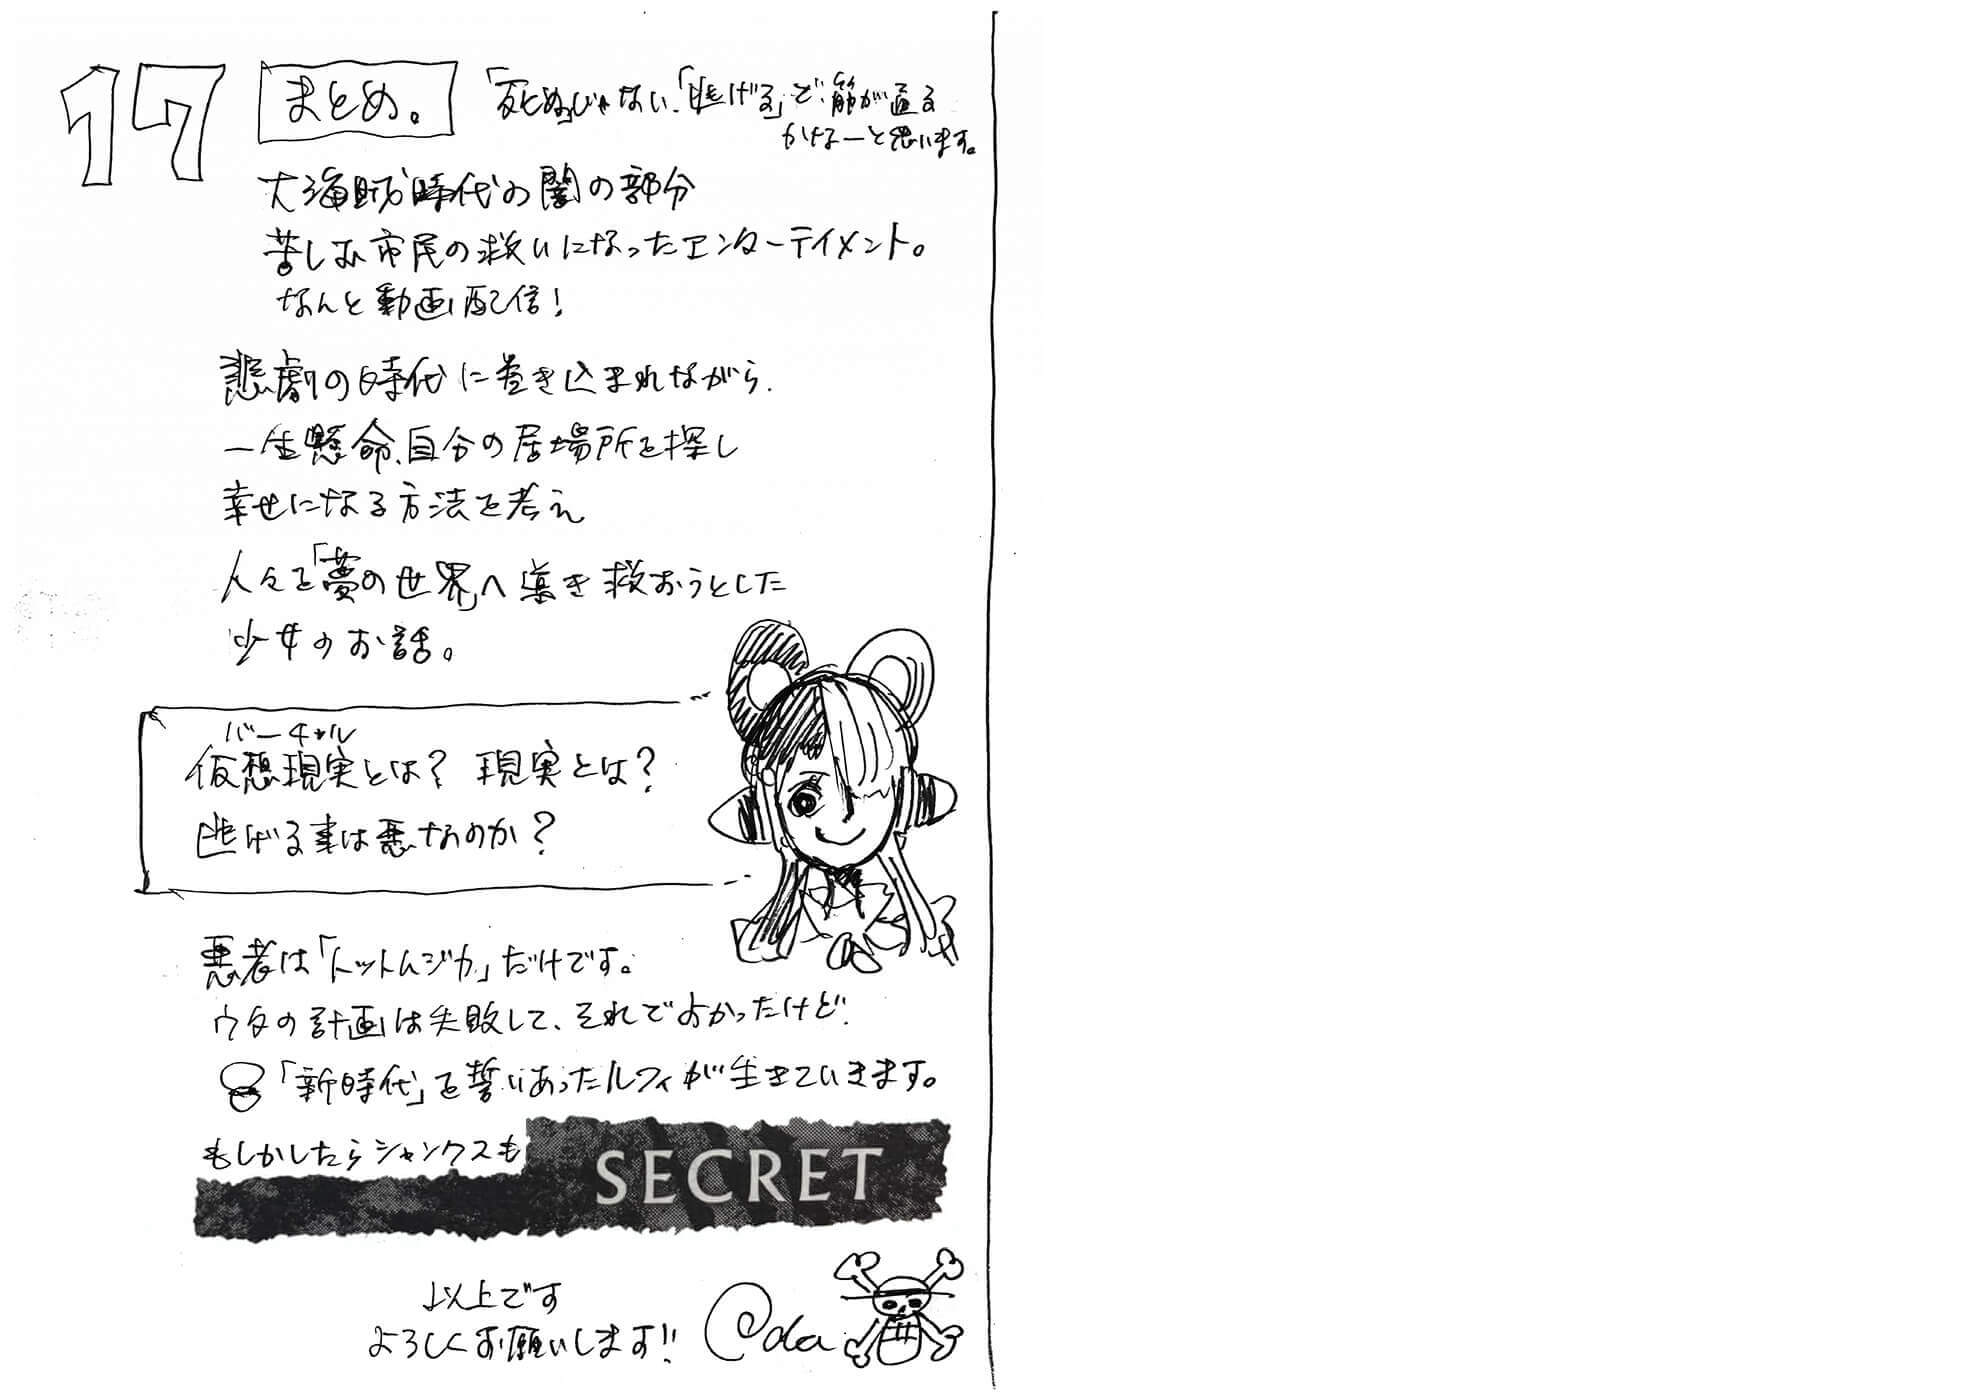 17
まとめ。
「死ぬ」じゃない、「逃げる」で筋が直る
かけなーと思います。
大海賊時代の闇の部分
苦しむ市民の救いになったエンターテイメント。
なんと動画配信!
悲劇の時代に巻き込まれながら、
一生懸命、自分の居場所を探し
幸せになる方法を考え
人々を「夢の世界」へ導き救おうとした
少女のお話。
バーチャル
仮想現実とは? 現実とは?
逃げる事は悪なのか?
悪者は「トットムジカ」だけです。
ウタの計画は失敗して、それでよかったけど、
「新時代」を誓いあったルフィが生きていきます。
もしかしたらシャンクスも
SECRET
以上です
よろしくお願いします!!
Oda